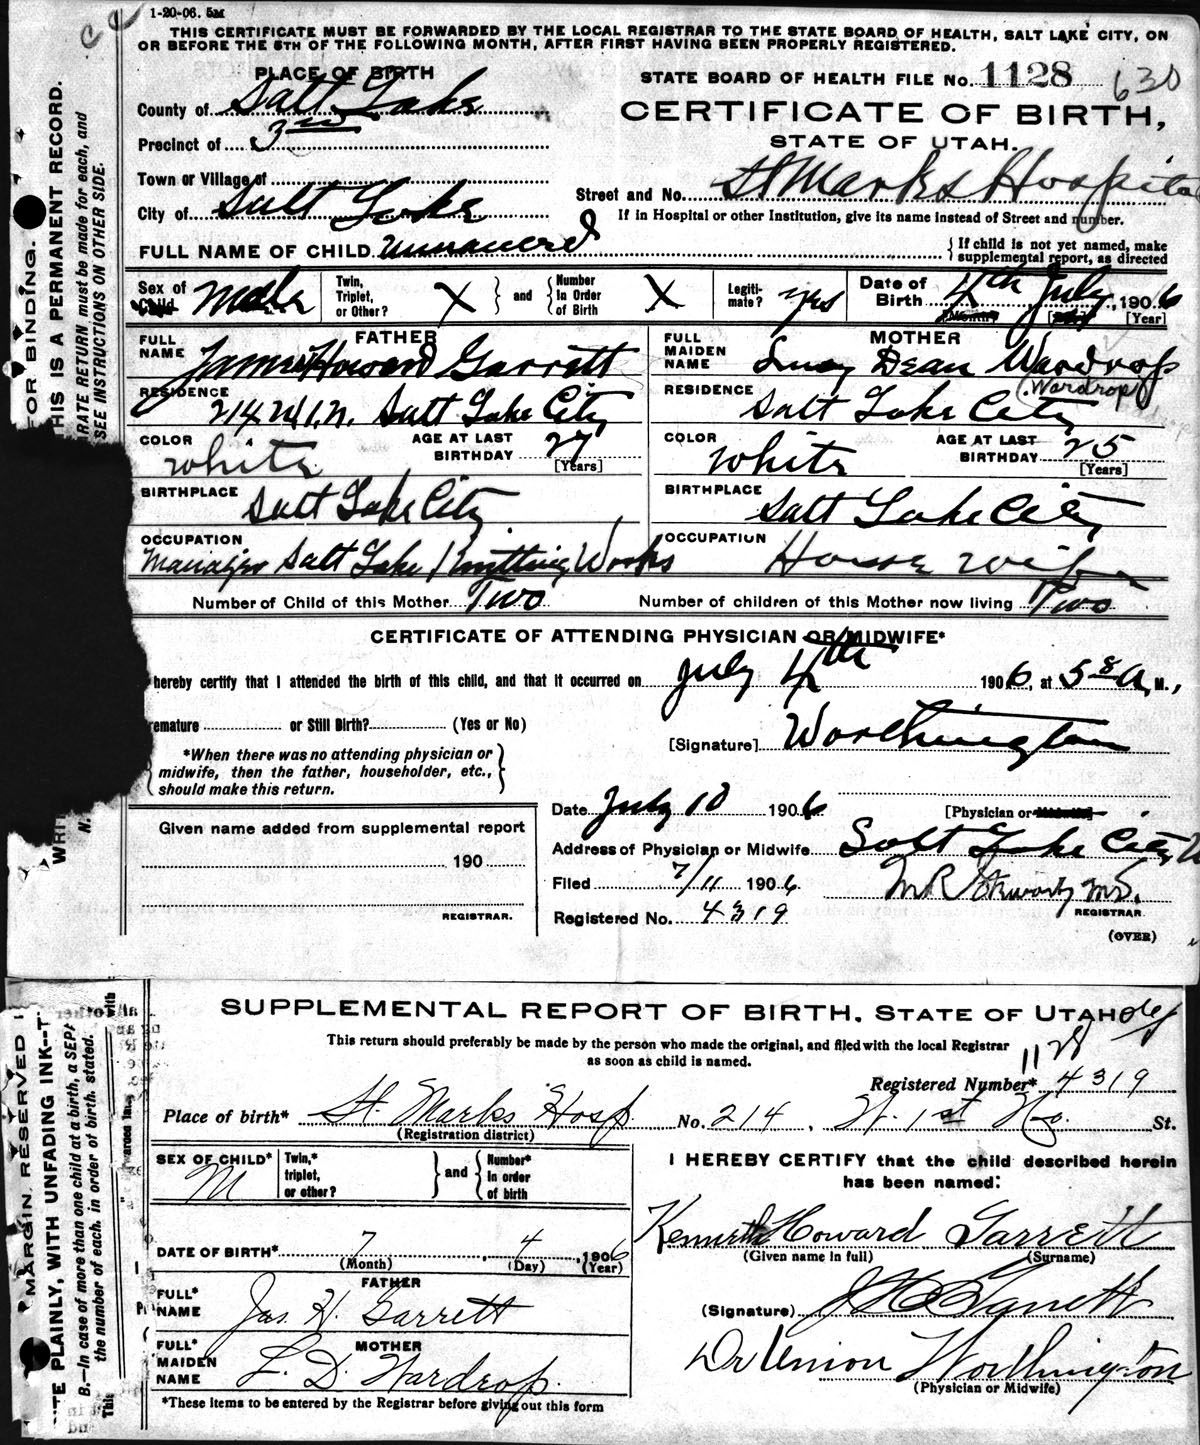 1-20-06. 5M
THIS CERTIFICATE MUST BE FORWARDED BY THE LOCAL REGISTRAR TO THE STATE BOARD OF HEALTH, SALT LAKE CITY, ON
OR BEFORE THE 5TH OF THE FOLLOWING MONTH, AFTER FIRST HAVING BEEN PROPERLY REGISTERED.
PLACE OF BIRTH
STATE BOARD OF HEALTH FILE No. 1128 630
County of Salt Lake
CERTIFICATE OF BIRTH,
Precinct of 3rd
STATE OF UTAH.
Town or Village of
Street and No. St Marks Hospital
City of Salt Lake
If in Hospital or other Institution, give its name instead of Street and number.
FULL NAME OF CHILD unnamed
{ If child is not yet named, make
supplemental report, as directed
Sex of Child male
Twin, Triplet, or Other? X } and { Number in Order of Birth X
Legiti-mate? yes
Date of Birth 4th July, 1906
[Month] [Day] [Year]
FATHER
FULL NAME James Howard Garrett
MOTHER
FULL MAIDEN NAME Lucy Dean Wardrop
(Wardrop)
RESIDENCE 214 W 1. N. Salt Lake City
RESIDENCE Salt Lake City
COLOR white AGE AT LAST BIRTHDAY 27 [Years]
COLOR white AGE AT LAST BIRTHDAY 25 [Years]
BIRTHPLACE Salt Lake City
BIRTHPLACE Salt Lake City
OCCUPATION Manager Salt Lake Knitting Works
OCCUPATION House wife
Number of Child of this Mother Two Number of children of this Mother now living Two
CERTIFICATE OF ATTENDING PHYSICIAN OR MIDWIFE*
hereby certify that I attended the birth of this child, and that it occurred on July 4th 1906, at 5 A. M.,
remature or Still Birth? (Yes or No)
[Signature] Worthington
*When there was no attending physician or
midwife, then the father, householder, etc.,
should make this return.
Date July 10 1906
[Physician or Midwife]
Given name added from supplemental report
Address of Physician or Midwife Salt Lake City U
190
Filed 7/11 1906
M R Stewart, M.D.
REGISTRAR.
REGISTRAR.
Registered No. 4319
(OVER)
FOR BINDING.
THIS IS A PERMANENT RECORD.
ARATE RETURN must be made for each, and
SEE INSTRUCTIONS ON OTHER SIDE.
WRIT
N.
SUPPLEMENTAL REPORT OF BIRTH. STATE OF UTAH
This return should preferably be made by the person who made the original, and filed with the local Registrar
as soon as child is named.
1128
Registered Number* 4319
Place of birth* St. Marks Hosp. No. 214, W. 1st No. St.
(Registration district)
SEX OF CHILD* M
Twin,* triplet, or other? } and { Number* in order of birth
I HEREBY CERTIFY that the child described herein
has been named:
Kenneth Howard Garrett
(Given name in full) (Surname)
DATE OF BIRTH* 7, 4, 1906
(Month) (Day) (Year)
FATHER
FULL* NAME Jas. H. Garrett
(Signature) J H Garrett
MOTHER
FULL* MAIDEN NAME L. D. Wardrop.
Dr Union Worthington
(Physician or Midwife)
*These items to be entered by the Registrar before giving out this form
MARGIN RESERVED
ITE PLAINLY, WITH UNFADING INK--T
B.—In case of more than one child at a birth, a SEPA
the number of each, in order of birth, stated.